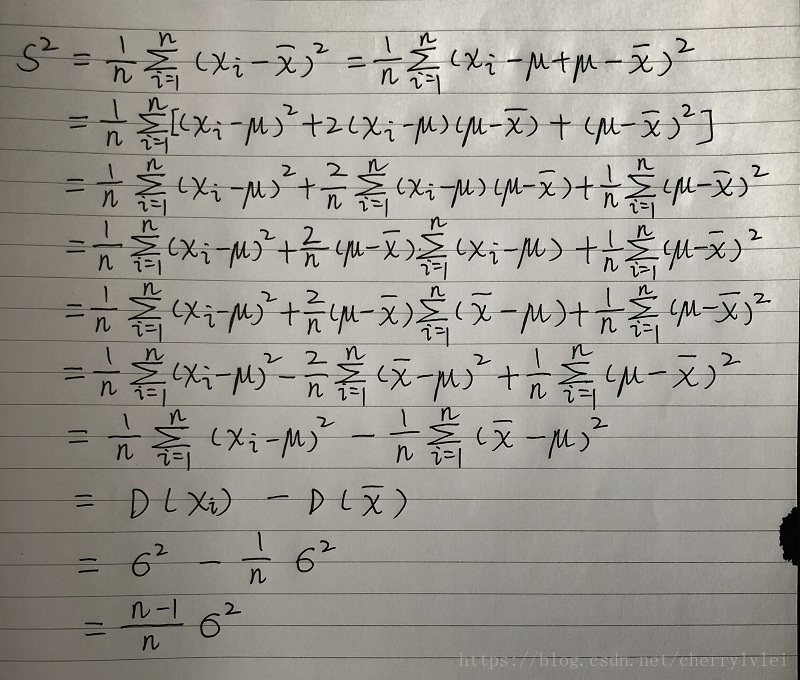 S² = 1/n ∑_{i=1}^{n} (xᵢ - x̄)² = 1/n ∑_{i=1}^{n} (xᵢ - μ + μ - x̄)²
= 1/n ∑_{i=1}^{n} [(xᵢ - μ)² + 2(xᵢ - μ)(μ - x̄) + (μ - x̄)²]
= 1/n ∑_{i=1}^{n} (xᵢ - μ)² + 2/n ∑_{i=1}^{n} (xᵢ - μ)(μ - x̄) + 1/n ∑_{i=1}^{n} (μ - x̄)²
= 1/n ∑_{i=1}^{n} (xᵢ - μ)² + 2/n (μ - x̄) ∑_{i=1}^{n} (xᵢ - μ) + 1/n ∑_{i=1}^{n} (μ - x̄)²
= 1/n ∑_{i=1}^{n} (xᵢ - μ)² + 2/n (μ - x̄) ∑_{i=1}^{n} (x̄ - μ) + 1/n ∑_{i=1}^{n} (μ - x̄)²
= 1/n ∑_{i=1}^{n} (xᵢ - μ)² - 2/n ∑_{i=1}^{n} (x̄ - μ)² + 1/n ∑_{i=1}^{n} (μ - x̄)²
= 1/n ∑_{i=1}^{n} (xᵢ - μ)² - 1/n ∑_{i=1}^{n} (x̄ - μ)²
= D(xᵢ) - D(x̄)
= 6² - 1/n 6²
= (n-1)/n 6²
https://blog.csdn.net/cherrylvlei